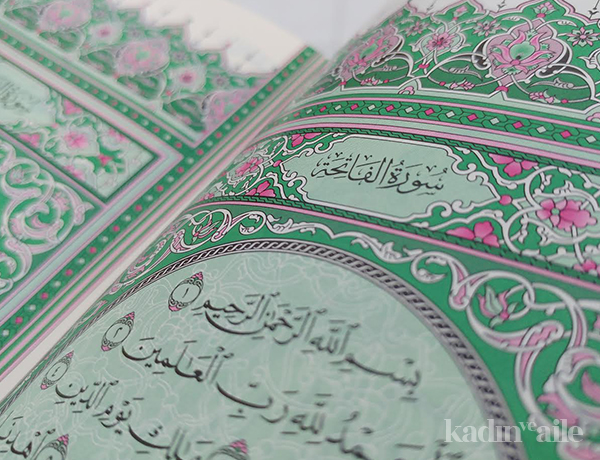 سُورَةُ الفَاتِحَةِ
بِسْمِ اللَّهِ الرَّحْمَٰنِ الرَّحِيمِ ١
لِلَّهِ رَبِّ الْعَالَمِينَ ٢
مَالِكِ يَوْمِ الدِّينِ
kadın ve aile